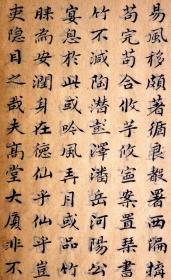 易風移頗著循良報署西偏構
苟完苟合攸芋攸寧案置琴書
竹不減陶潛彭澤潘岳河陽公
宴息於此或吟風弄月或品竹
安潤身在德仙乎仙乎豈
吏隱目之哉夫高堂大廈非不